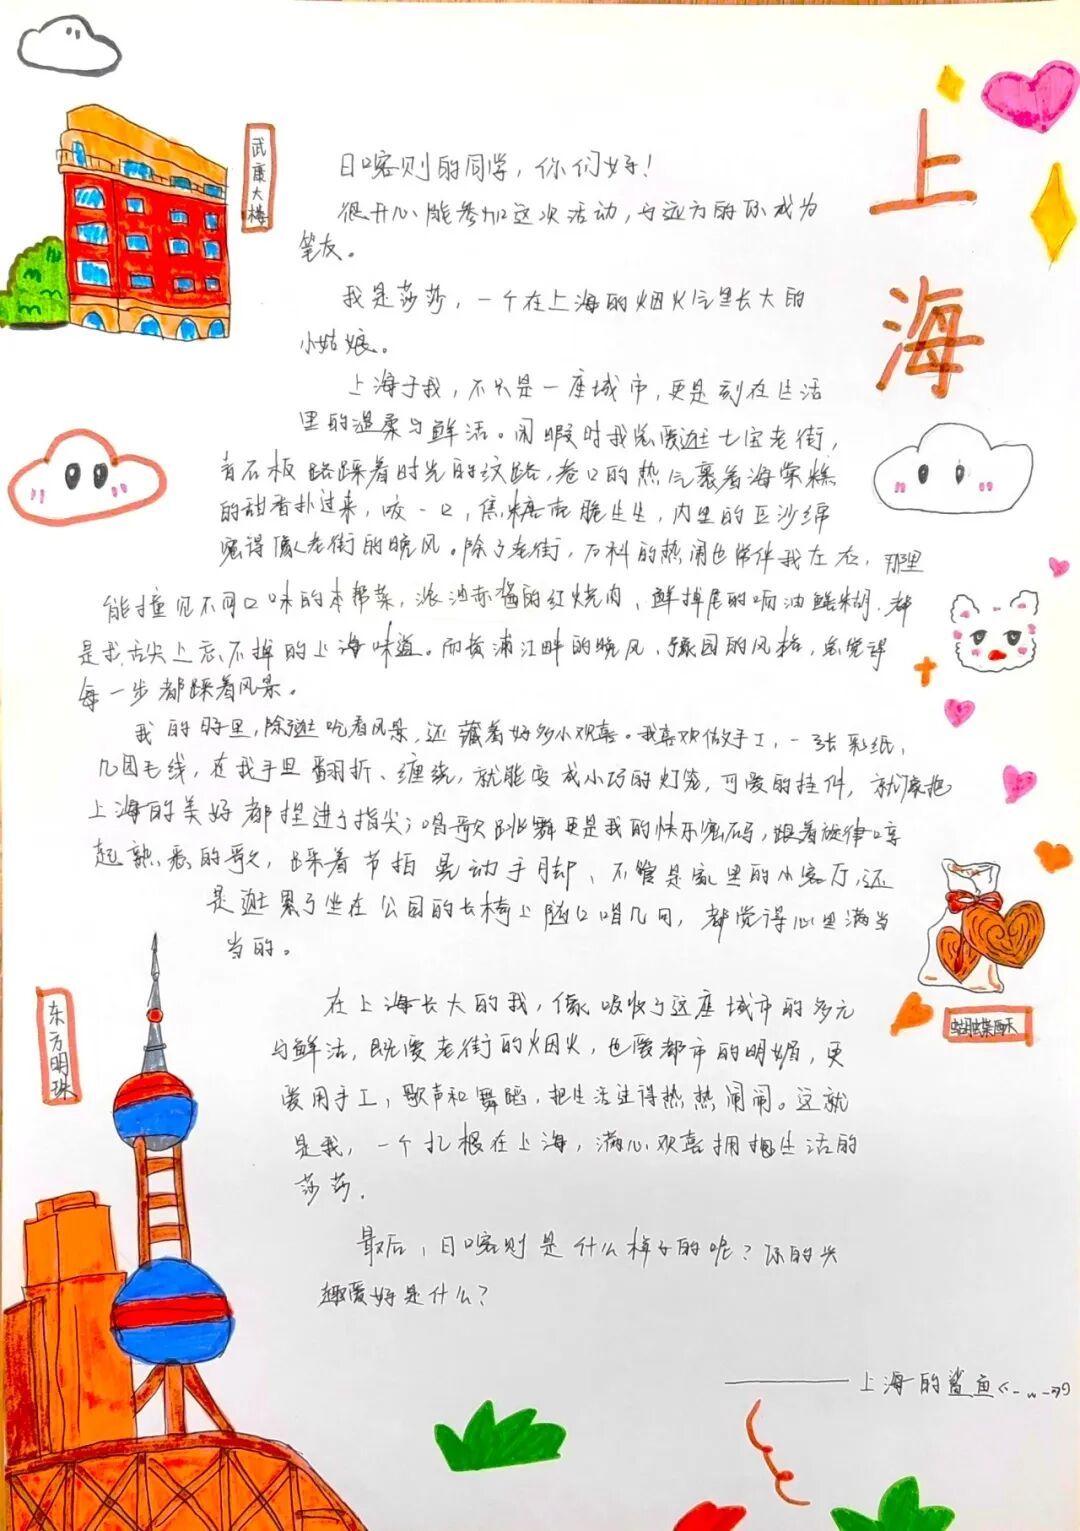 上海
武康大楼
日喀则的同学，你们好！
很开心能参加这次活动，与远方的你成为
笔友。
我是莎莎，一个在上海的烟火气里长大的
小姑娘。
上海于我，不只是一座城市，更是刻在生活
里的温柔与鲜活。闲暇时我总爱逛七宝老街，
青石板路踩着时光的纹路，巷口的热气裹着海棠糕
的甜香扑过来，咬一口，焦糖壳脆生生，内里的豆沙绵
密得像老街的晚风。除了老街，万科的热闹也常伴我左右，那里
能撞见不同口味的本帮菜，浓油赤酱的红烧肉、鲜掉尾的响油鳝糊，都
是我舌尖上忘不掉的上海味道。而黄浦江畔的晚风、豫园的风格，总觉得
每一步都踩着风景。
我的日子里，除了逛吃看风景，还藏着好多小欢喜。我喜欢做手工，一张彩纸、
几团毛线，在我手里翻折、缠绕，就能变成小巧的灯笼，可爱的挂件，就像把
上海的美好都捏进了指尖；唱歌跳舞更是我的快乐密码，跟着旋律哼
起熟悉的歌，踩着节拍晃动手脚、不管是家里的小客厅，还
是逛累了坐在公园的长椅上随口唱几句，都觉得心里满当
当的。
在上海长大的我，像吸收了这座城市的多元
与鲜活，既爱老街的烟火，也爱都市的明媚，更
爱用手工，歌声和舞蹈，把生活过得热热闹闹。这就
是我，一个扎根在上海，满心欢喜拥抱生活的
莎莎。
最后，日喀则是什么样子的呢？你的兴
趣爱好是什么？
——上海的鲨鱼
东方明珠
蝴蝶酥